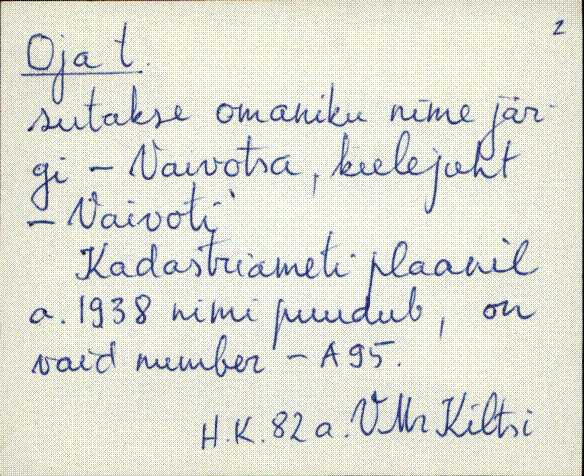 2
Oja t.
sutakse omaniku nime jär-
gi - Vaivotsa, keelejuht
- Vaivoti
Kadastriameti plaanil
a. 1938 nimi puudub, on
vaid number - A95.
H.K. 82 a. VMr Kiltsi